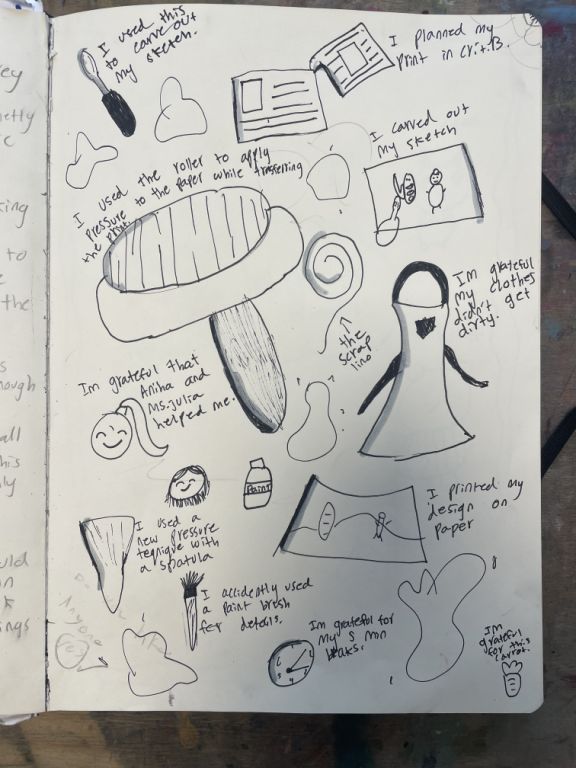 I used this
to carve out
my sketch.
I planned my
print in crit.B.
I carved out
my sketch
I used the roller to apply
pressure to the paper while
the
Im grateful
my clothes
didn't get
dirty.
the
scrap
lino
Im grateful that
and
Ms.Julia
helped me.
Paint
I printed my
design on
paper
I used a
new pressure
tequique with
a spatula
I accidently used
a paint brush
for details.
Im grateful for
my 5 min
Im
grateful
for this
carrot.
Anyone